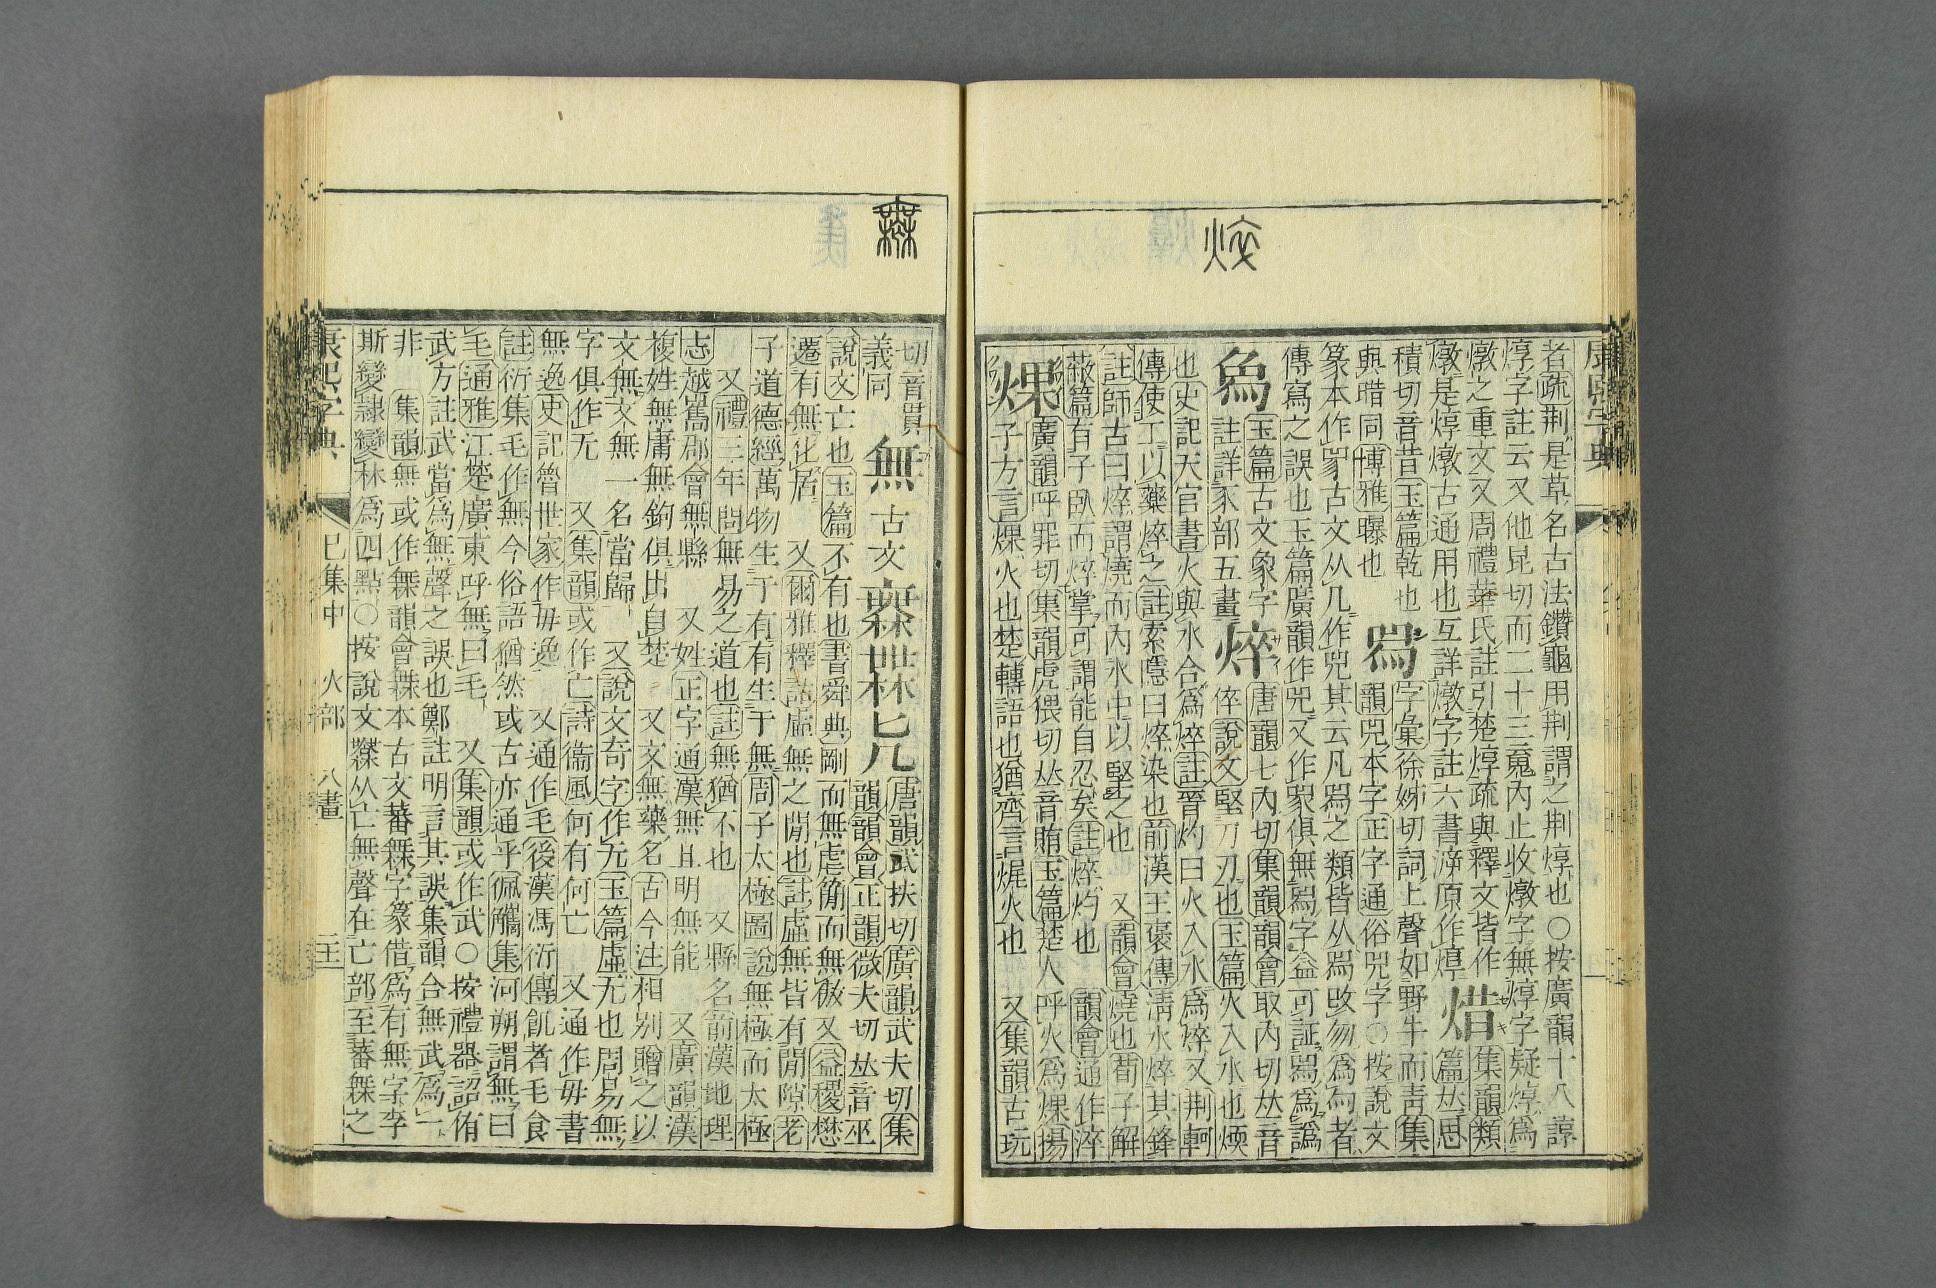 焠
康熙字典
者疏荆是草名古法鑽龜用荆謂之荆焞也○按廣韻十八諄
焞字註云又他昆切而二十三蒐內止收燉字無焞字疑焞爲
燉之重文又周禮菙氏註引楚焞疏與釋文皆作
燉是焞燉古通用也互詳燉字註六書㳍原作焞
焟
集韻類
篇𠀤思
積切音昔玉篇乾也
與㬤同博雅曝也
㷅
字彙徐姊切詞上聲如野牛而靑集
韻兕本字正字通俗兕字○按說文
篆本作𤉡古文从几作兕其云凡𤉡之類皆从𤉡改勿爲勾者
傳寫之誤也玉篇廣韻作兕又作𤉡俱無㷅字益可証㷅爲譌
𤉢
玉篇古文象字
註詳豕部五畫
焠
唐韻七內切集韻韻會取內切𠀤音
倅說文堅刀刃也玉篇火入水也煗
也史記天官書火與水合爲焠註晉灼曰火入水爲焠又荆軻
傳使工以藥焠之註索隱曰焠染也前漢王褒傳淸水焠其鋒
註師古曰焠謂燒而內水中以堅之也 又韻會燒也荀子解
蔽篇有子臥而焠掌可謂能自忍矣註焠灼也 韻會通作淬
㷄
廣韻呼罪切集韻虎猥切𠀤音賄玉篇楚人呼火爲㷄揚
子方言㷄火也楚轉語也猶齊言㷄火也 又集韻古玩
無
切音貫
義同
無
古文
𣞣
𠘩
唐韻武扶切廣韻武夫切集
韻韻會正韻微夫切𠀤音巫
說文亡也玉篇不有也書舜典剛而無虐𥳑而無傲又益稷懋
遷有無化居 又爾雅釋詁虛無之閒也註虛無皆有閒隙老
子道德經萬物生于有有生于無周子太極圖說無極而太極
又禮三年問無易之道也註無猶不也 又縣名前漢地理
志越嶲郡會無縣 又姓正字通漢無且明無能 又廣韻漢
複姓無庸無鉤俱出自楚 又文無藥名古今注相別贈之以
文無文無一名當歸 又說文奇字作无玉篇虛无也周易無
字俱作无 又集韻或作亡詩衞風何有何亡 又通作毋書
無逸史記魯世家作毋逸 又通作毛後漢馮衍傳飢者毛食
註衍集毛作無今俗語猶然或古亦通乎佩觿集河朔謂無曰
毛通雅江楚廣東呼無曰毛 又集韻或作武○按禮器詔侑
武方註武當爲無聲之誤也鄭註明言其誤集韻合無武爲一
非 集韻無或作𣞤韻會𣞤本古文蕃𣞤字篆借爲有無字李
斯變隸變林爲四點○按說文𣞣从亡無聲在亡部至蕃𣞤之
康熙字典
巳集中 火部 八畫 二十一